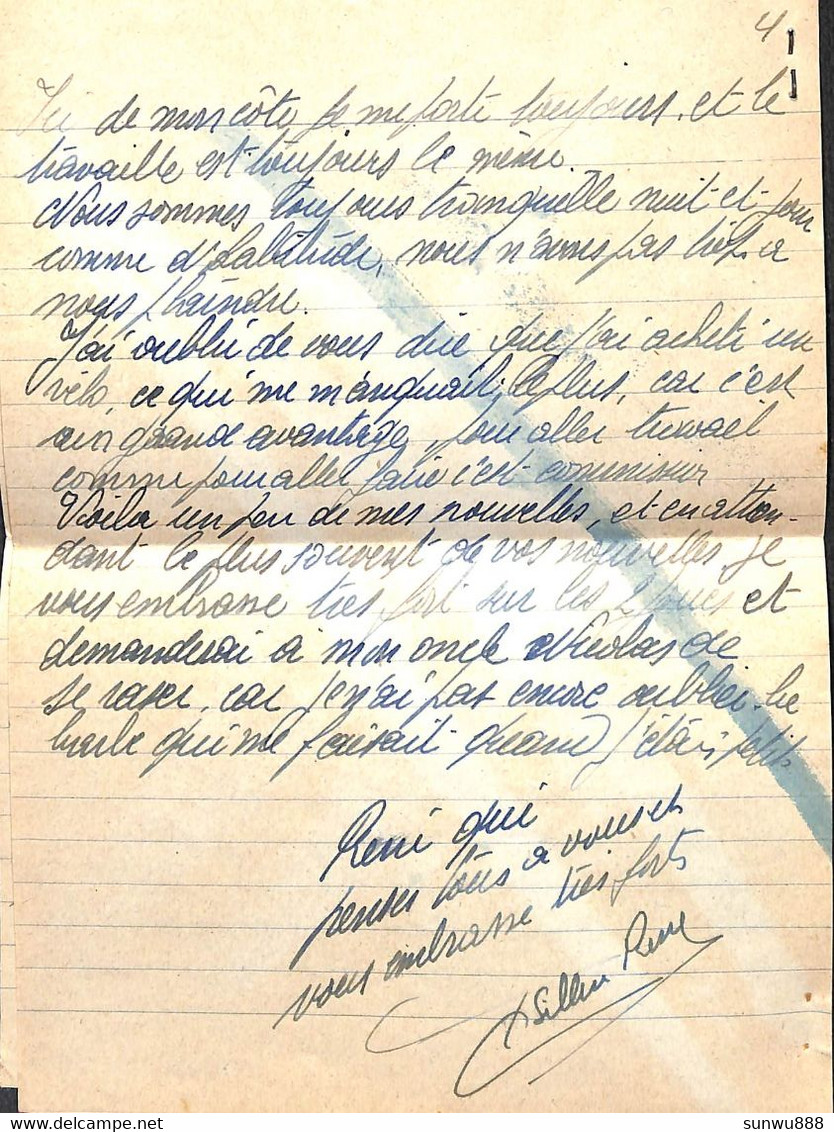 4
Ici de mon côte je me porte toujours, et le
travaille est toujours le même.
Nous sommes toujours tranquille nuit et jour
comme d'habitude, nous n'avons pas trop a
nous plaindre.
J'ai oublié de vous dire que j'ai acheté un
vélo, ce qui me manquait le plus, car c'est
un grande avantage pour aller travail
comme pour aller faire c'est commission
Voila un peu de mes nouvelles, et en atten-
dant le plus souvent de vos nouvelles, je
vous embrasse tres fort sur les 2 joues et
demanderai a mon oncle Nicolas de
se raser, car je n'ai pas encore oublier la
barbe qui me faisait quand j'étais petit.
René qui
penser tous a vous et
vous embrasse tres forts
René
sunwu888